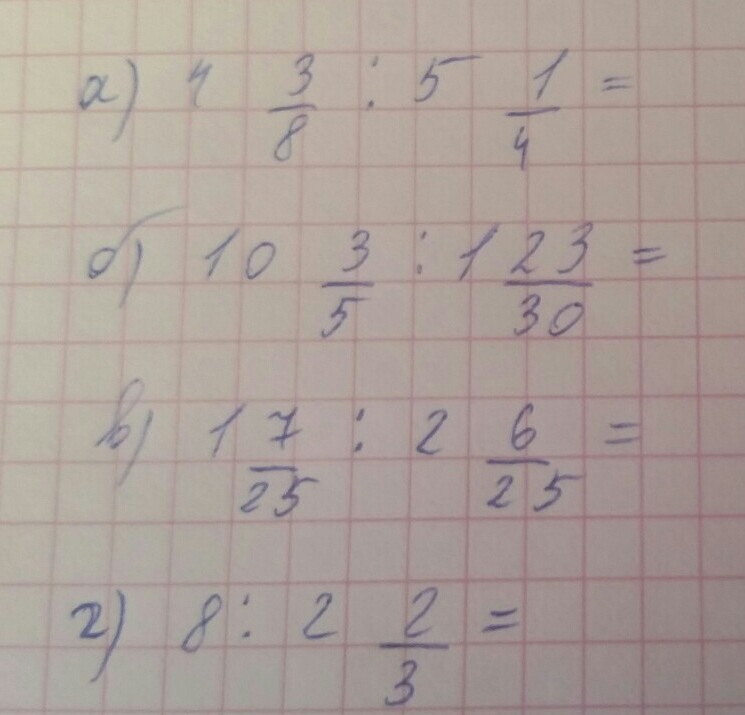 а) 4 3/8 : 5 1/4 =
б) 10 3/5 : 1 23/30 =
в) 1 7/25 : 2 6/25 =
г) 8 : 2 2/3 =